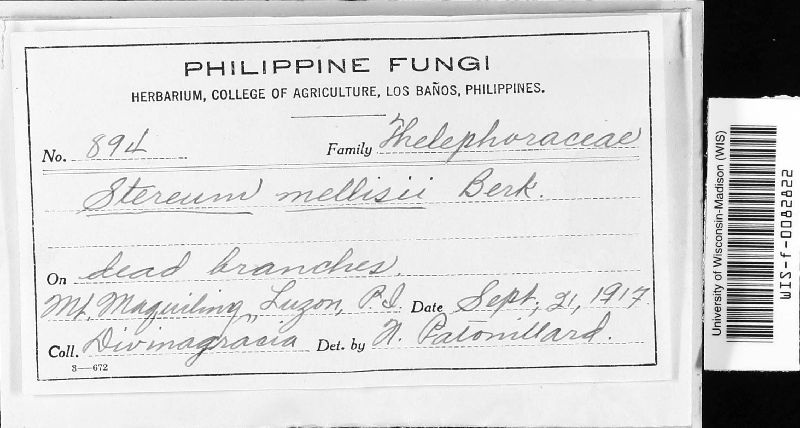 PHILIPPINE FUNGI
HERBARIUM, COLLEGE OF AGRICULTURE, LOS BAÑOS, PHILIPPINES.
No. 894 Family Thelephoraceae
Stereum mellisii Berk.
On dead branches.
Mt. Maquiling, Luzon, P.I. Date Sept, 21, 1917
Coll. Divinagracia Det. by N. Patouillard.
S—672
University of Wisconsin-Madison (WIS)
WIS-f-0082822